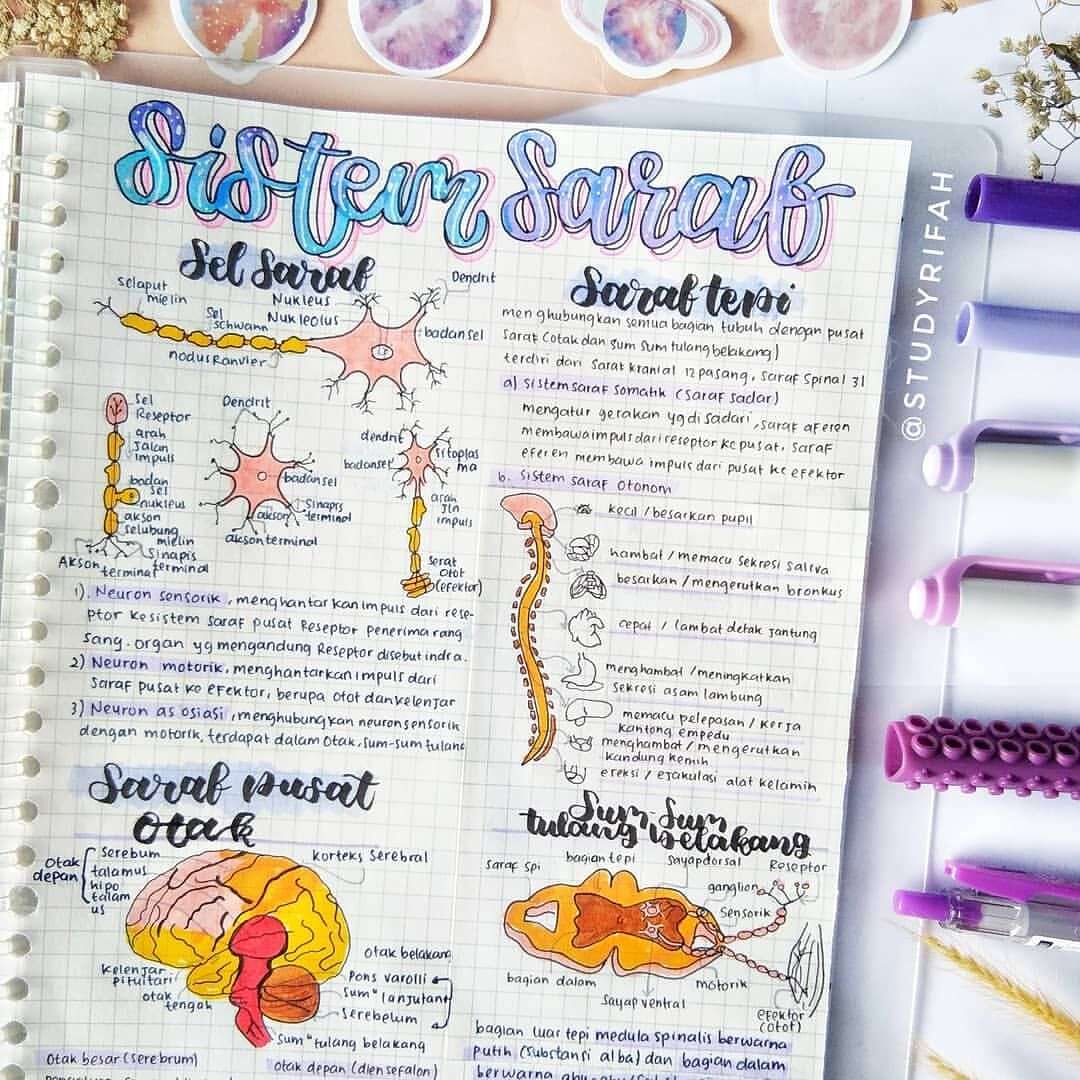 Sistem Saraf
Sel Saraf
selaput
mielin
Nukleus
Nukleolus
Dendrit
Sel
schwann
badan sel
nodus Ranvier
Sel
Reseptor
arah
Jalan
impuls
badan
sel
nukleus
akson
selubung
mielin
Sinapis
terminal
Akson
terminal
Dendrit
badan sel
Sinaps
terminal
akson
akson terminal
dendrit
badan sel
sitoplas
ma
arah
Jln
impuls
serat
otot
(efektor)
1). Neuron sensorik, menghantarkan impuls dari rese-
ptor ke sistem saraf pusat Reseptor penerima rang
sang. organ yg mengandung Reseptor disebut indra.
2) Neuron motorik, menghantarkan impuls dari
saraf pusat ke efektor, berupa otot dan kelenjar
3) Neuron asosiasi, menghubungkan neuron sensorik
dengan motorik, terdapat dalam otak, sum-sum tulang
Saraf tepi
menghubungkan semua bagian tubuh dengan pusat
saraf (otak dan sum sum tulang belakang)
terdiri dari saraf kranial 12 pasang, saraf spinal 31
a) sistem saraf somatik (saraf sadar)
mengatur gerakan yg di sadari, saraf aferen
membawa impuls dari reseptor ke pusat, saraf
eferen membawa impuls dari pusat ke efektor
b. sistem saraf otonom
kecil / besarkan pupil
hambat / memacu sekresi saliva
besarkan / mengerutkan bronkus
cepat / lambat detak jantung
menghambat / meningkatkan
sekresi asam lambung
memacu pelepasan / kerja
kantong empedu
menghambat / mengerutkan
kandung kemih
ereksi / ejakulasi alat kelamin
Saraf pusat
otak
otak
depan
serebum
talamus
hipo
talam
us
korteks serebral
otak belakang
Pons varolli
sum" lanjutan
Serebelum
kelenjar
pituitari
otak
tengah
sum" tulang belakang
otak besar (serebrum)
otak depan (diensefalon)
Sum Sum
tulang belakang
saraf spi
bagian tepi
sayap dorsal
Reseptor
ganglion
sensorik
bagian dalam
sayap ventral
motorik
efektor
(otot)
bagian luar tepi medula spinalis berwarna
putih (substansi alba) dan bagian dalam
@STUDYRIFAH